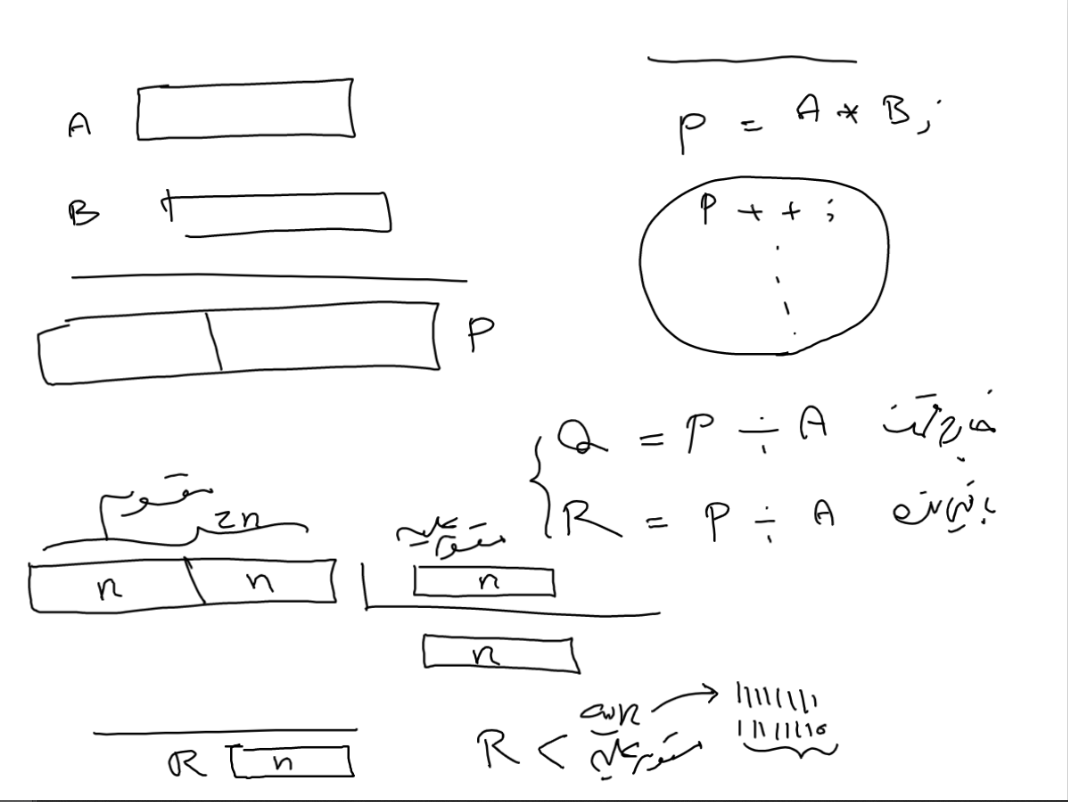 A
B
P
P = A * B;
P + + ;
Q = P ÷ A خارج قسمت
R = P ÷ A باقی مانده
مقسوم
2n
n n
مقسوم علیه
n
n
R n
R < مقسوم علیه
11111111
11111110